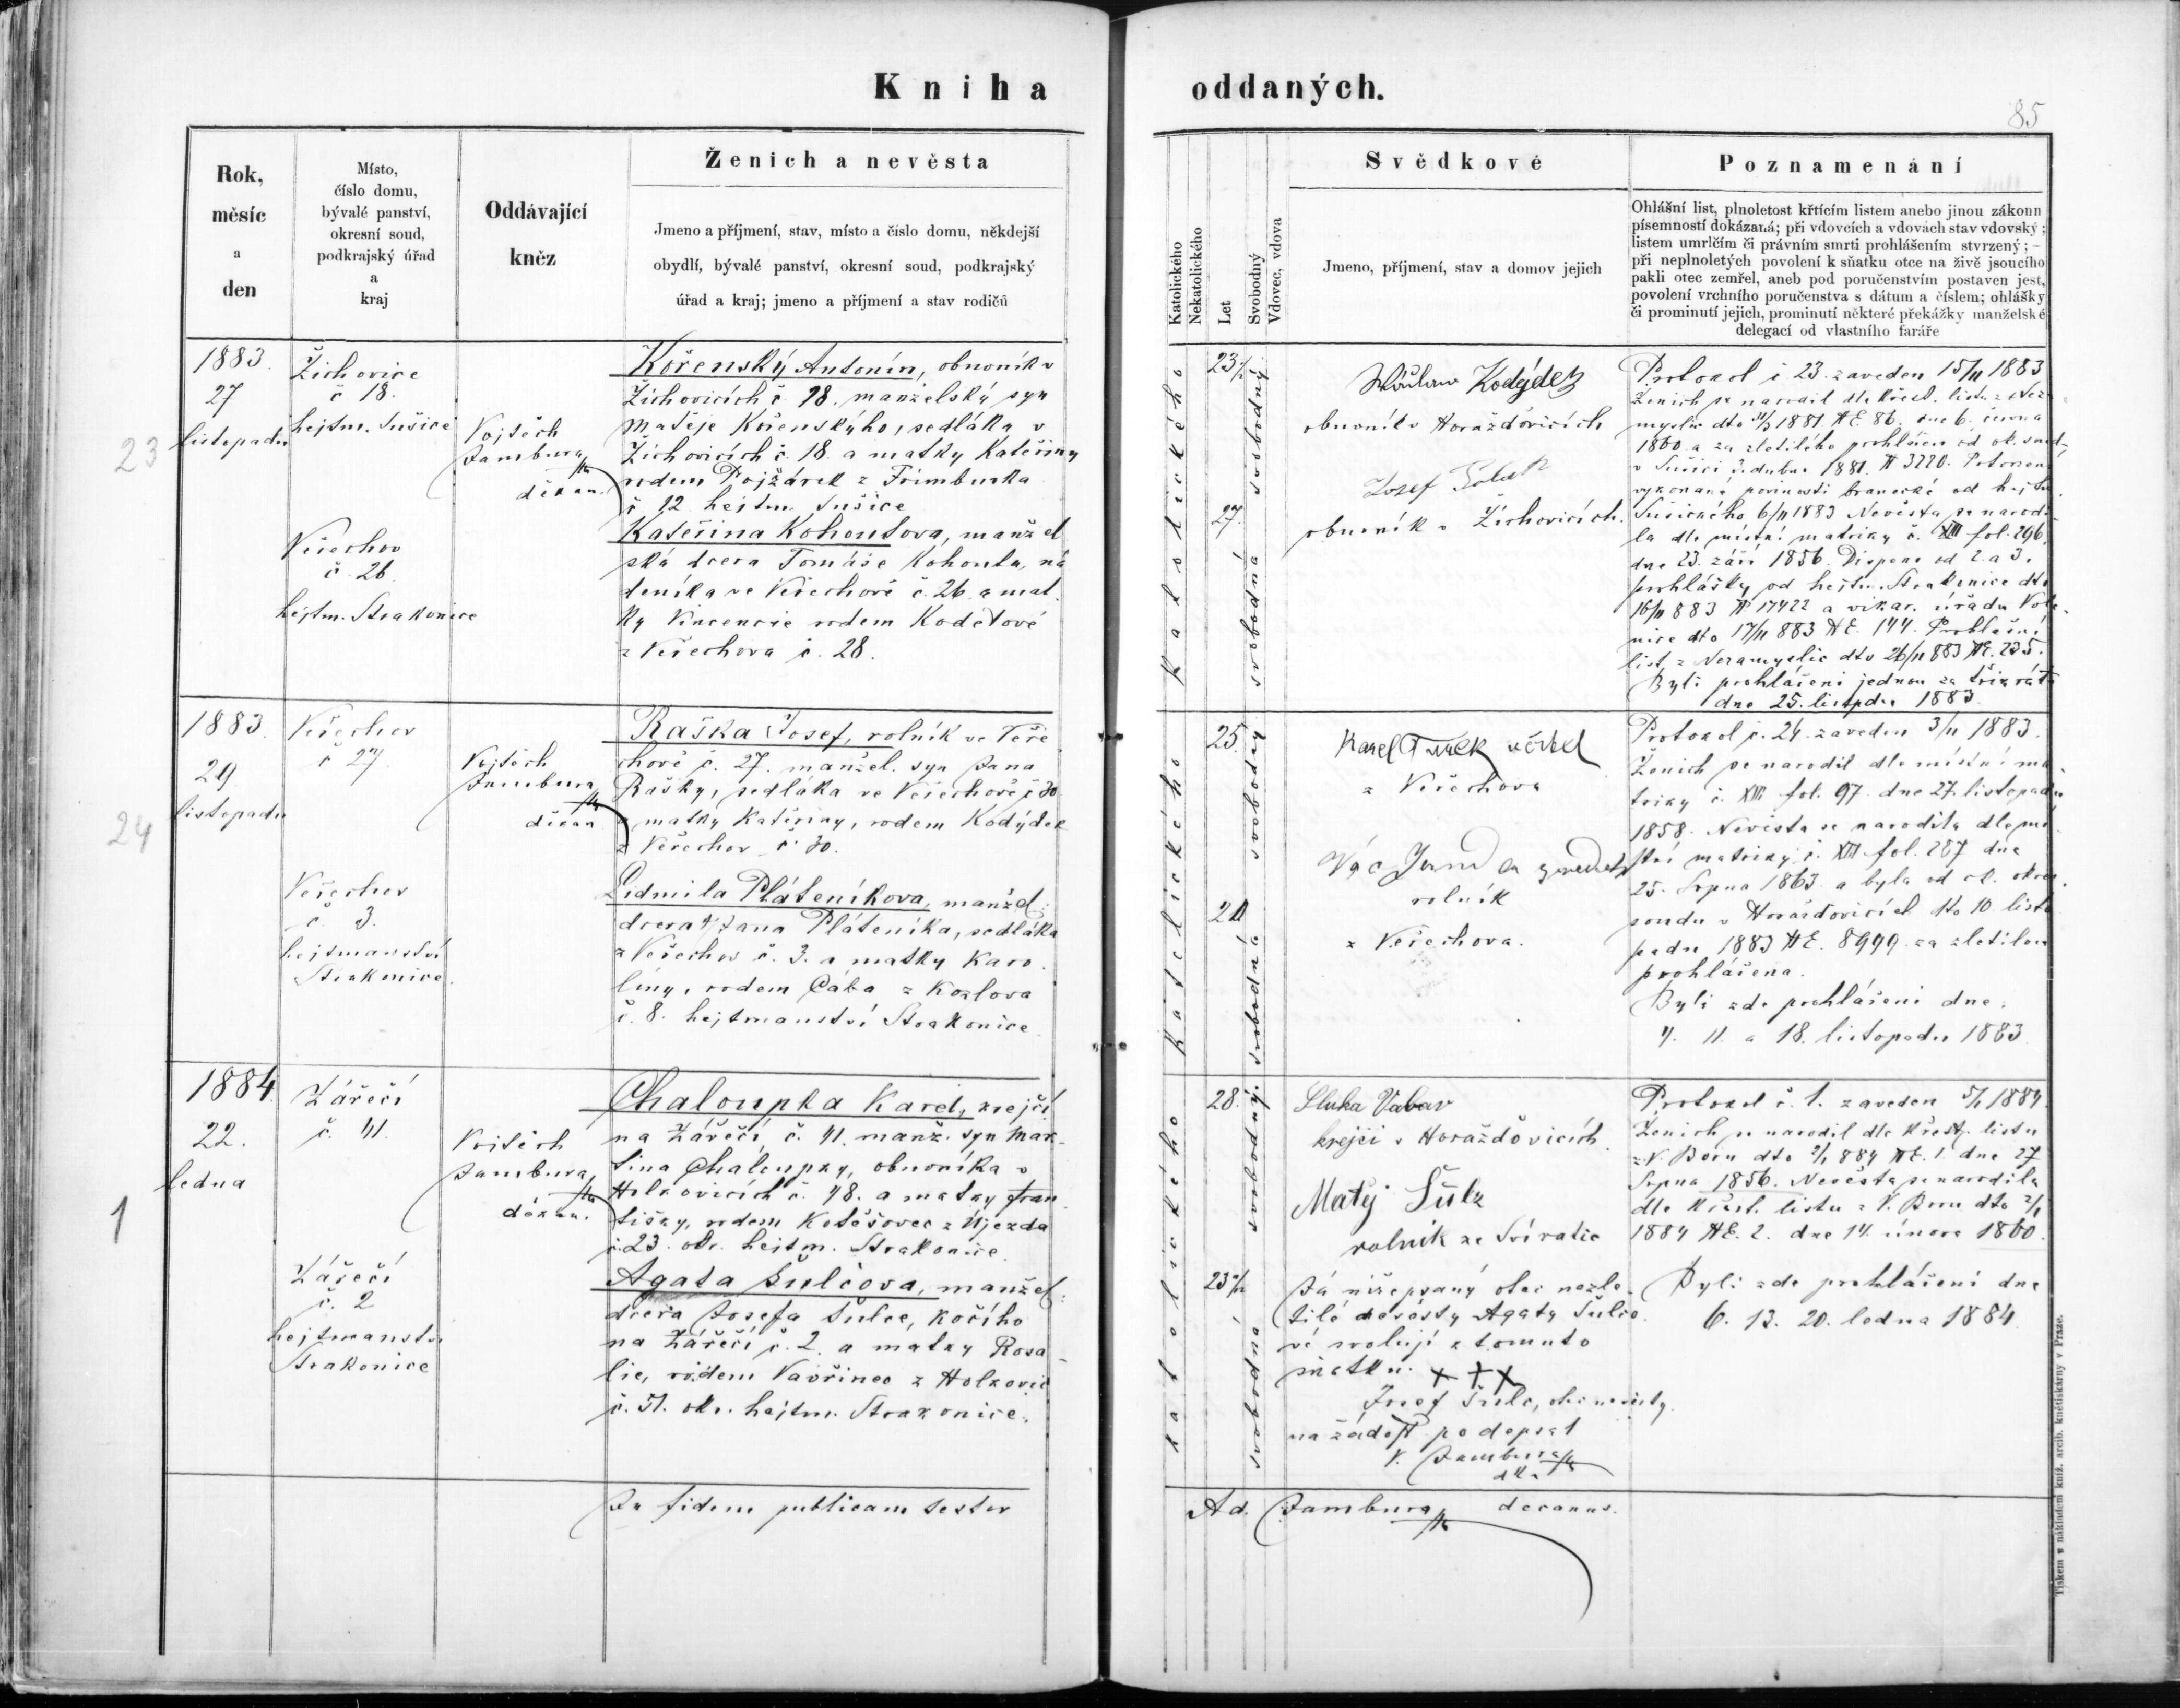 Kniha oddaných.
85
Rok,
měsíc
a
den
Místo,
číslo domu,
bývalé panství,
okresní soud,
podkrajský úřad
a
kraj
Oddávající
kněz
Ženich a nevěsta
Jmeno a příjmení, stav, místo a číslo domu, někdejší
obydlí, bývalé panství, okresní soud, podkrajský
úřad a kraj; jmeno a příjmení a stav rodičů
Katolického
Nekatolického
Let
Svobodný
Vdovec, vdova
Svědkové
Jmeno, příjmení, stav a domov jejich
Poznamenání
Ohlášní list, plnoletost křtícím listem anebo jinou zákonn
písemností dokázaná; při vdovcích a vdovách stav vdovský ;
listem umrlčím či právním smrti prohlášením stvrzený ; –
při neplnoletých povolení k sňatku otce na živě jsoucího
pakli otec zemřel, aneb pod poručenstvím postaven jest,
povolení vrchního poručenstva s dátum a číslem; ohlášky
či prominutí jejich, prominutí některé překážky manželské
delegací od vlastního faráře
23
1883.
27
listopadu
Žichovice
č 18.
hejtm. Sušice
Vojtěch
Jambura
děkan.
Kořenský Antonín, obuvník v
Žichovicích č. 18. manželský syn
Matěje Kořenského, sedláka v
Žichovicích č. 18. a matky Kateřiny
rodem Pojžárek z Frimburka
č 12 hejtm. Sušice
Veřechov
č. 26.
hejtm. Strakonice
Kateřina Kohoutova, manžel
ská dcera Tomáše Kohouta, ná
deníka ve Veřechově č. 26. a mat
ky Vincencie rodem Kodetové
z Veřechova č. 28.
katolického
23
svobodný
27.
svobodná
Kodýdek
obuvník v Horažďovicích
Josef
obuvník v Žichovicích.
Protokol č 23. zaveden 15/11 1883
Ženich se narodil dle křest. listu z Neza
myslic dto 1881. NE. 86. dne 6. února
1860. a za zletilého prohlášen od ok. soud
v Sušici 3. dubna 1881. N 3220. Potvrzen
vykonané povinosti branecké od hejtm
Sušického 6/11 1883 Nevěsta se narodi
la dle místní matriky č. XIII fol. 296.
dne 23. září 1856. Dispens od 2. a 3.
prohlášky od hejtm. Strakonice dto
16/11 883 N 17422 a vikar. úřadu Vole
nice dto 17/11 883 NE. 144. Prohlášní
list z Nezamyslic dto 26/11 883 NE. 235.
Byli prohlášeni jednou za třikráte
dne 25. listopadu 1883
24
1883.
29
listopadu
Veřechov
č 27
Vojtěch
Jambura
děkan
Raška Josef, rolník ve Veře
chově č. 27. manžel. syn Jana
Rašky, sedláka ve Veřechově č 30
a matky Kateřiny, rodem Kodýdek
z Veřechov č 30.
Veřechov
č. 3.
hejtmanství
Strakonice.
Lidmila Pláteníkova, manžel:
dcera Jana Pláteníka, sedláka
z Veřechov č. 3. a matky Karo
líny, rodem Cába z Kozlova
č. 8. hejtmanství Strakonice
katolického
25.
svobodný
20
svobodná
Karel Turek
z Veřechova
rolník
z Veřechova.
Protokol č. 24. zaveden 3/11 1883.
Ženich se narodil dle místní ma
triky č. XIII fol. 97. dne 27. listopadu
1858. Nevěsta se narodila dle mí
stní matriky č. XIII fol. 287 dne
25. Srpna 1863 a byla od ok. okres.
soudu v Horažďovicích dto 10. listo
padu 1883 NE. 8999. za zletilou
prohlášena.
Byli zde prohlášeni dne
4. 11. a 18. listopadu 1883
1
1884.
22.
ledna
Zářečí
č. 41.
Vojtěch
Jambura
děkan.
Chaloupka Karel, krejčí
na Zářečí č. 41. manž. syn Mar
tina Chaloupky, obuvníka v
Holkovicích č. 48. a matky Fran
tišky, rodem Kotěšovec z Újezda
č. 23. okr. hejtm. Strakonice.
Zářečí
č. 2
hejtmanstv
Strakonice
Agata Šulcova, manžel:
dcera Josefa Šulce, kočího
na Zářečí č. 2. a matky Rosa
lie, rodem Vavřinec z Holkovic
č. 51. okr. hejtm. Strakonice.
katolického
28.
svobodný.
23
svobodná
Sluka Václav
krejčí v Horažďovicích
Matěj Šulz
rolník ze Svíratic
Já nížepsaný otec nezle
tilé nevěsty Agaty Šulco
vé svoluji k tomuto
sňatku. +++
Josef Šulc, otec nevěsty
na žádosť podepsal
V. Jambura
Protokol č. 1. zaveden 5/1 1884.
Ženich se narodil dle křest. listu
z V. Boru dto 2/1 884 NE. 1. dne 27
Srpna 1856. Nevěsta se narodila
dle křest. listu z V. Boru dto 2/1
1884 NE. 2. dne 14. února 1860.
Byli zde prohlášeni dne
6. 13. 20. ledna 1884
In fidem publicam testor
Ad. Jambura decanus.
Tiskem a nákladem kníž. arcib. knětiskárny v Praze.